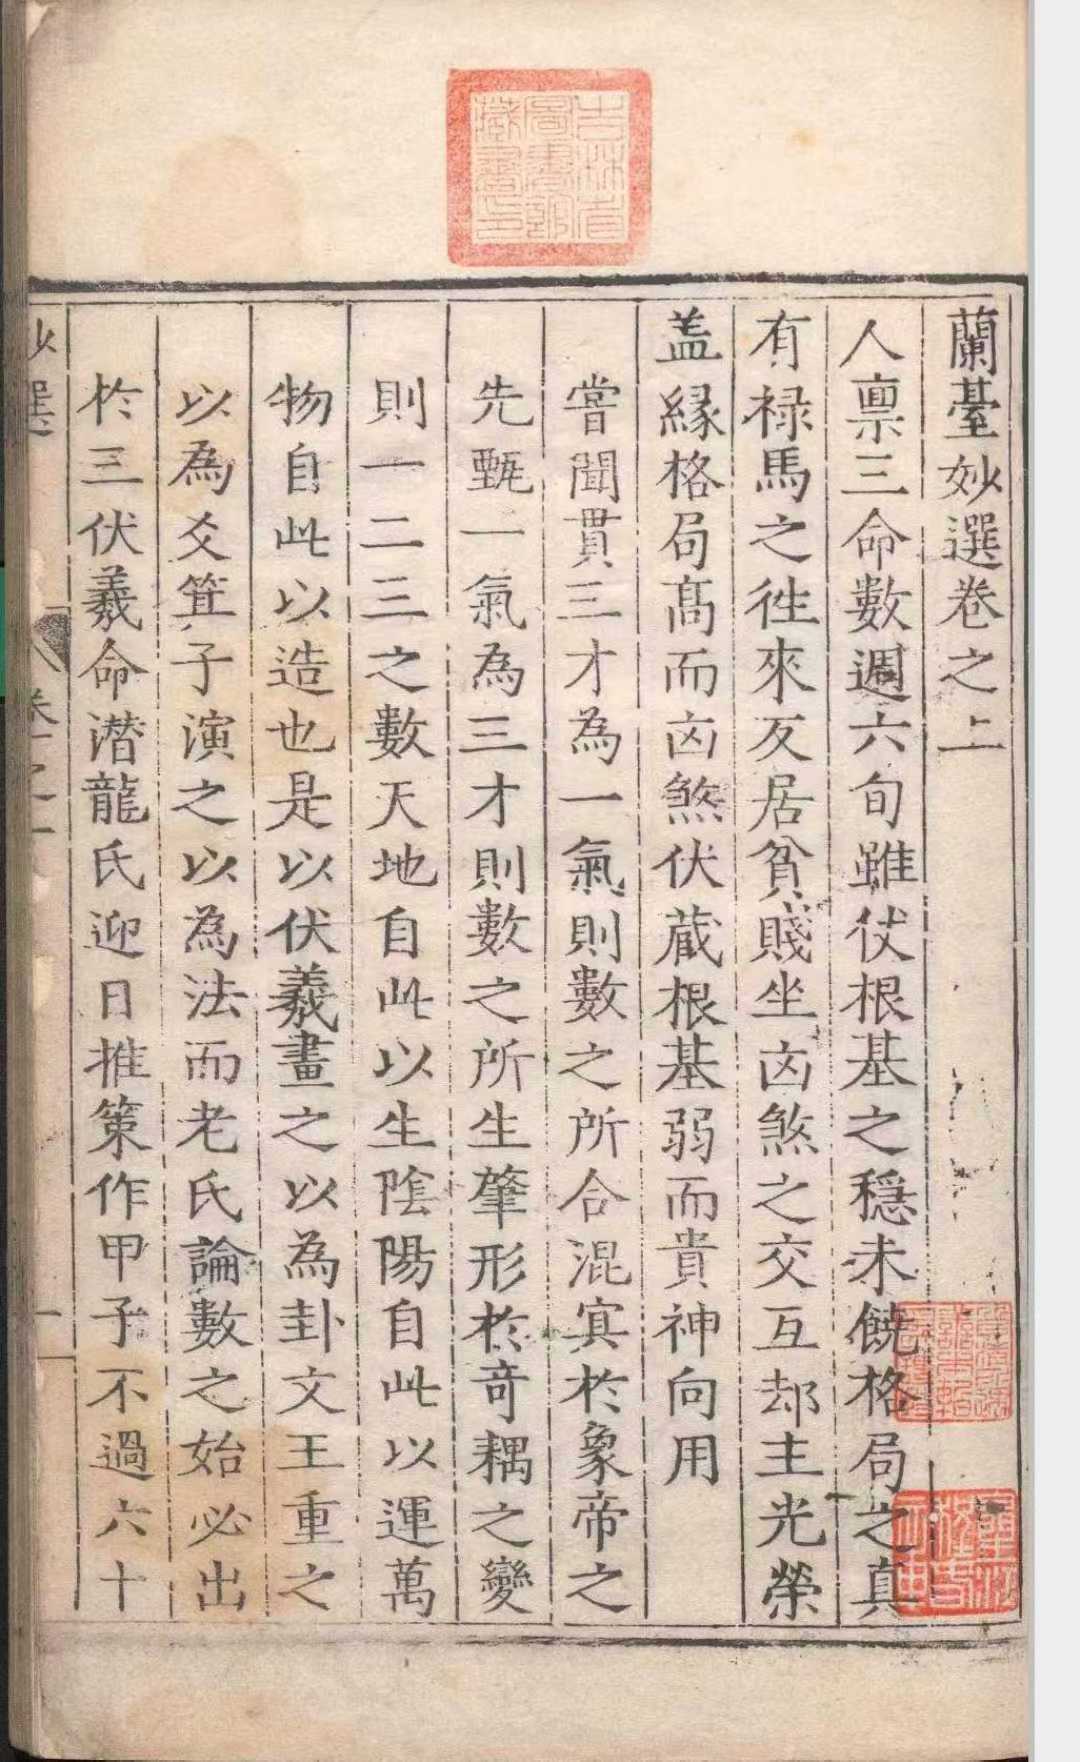 吉林省
圖書館
藏書印
蘭臺妙選卷之上
人禀三命數週六旬雖仗根基之穩未饒格局之真
有禄馬之徃來反居貧賤坐凶煞之交互却主光榮
盖縁格局髙而凶煞伏藏根基弱而貴神向用
嘗聞貫三才為一氣則數之所合混㝠於象帝之
先甄一氣為三才則數之所生肇形於竒耦之變
則一二三之數天地自此以生隂陽自此以運萬
物自此以造也是以伏羲畫之以為卦文王重之
以為爻箕子演之以為法而老氏論數之始必出
於三伏羲命潜龍氏迎日推策作甲子不過六十
妙選
卷之上
一